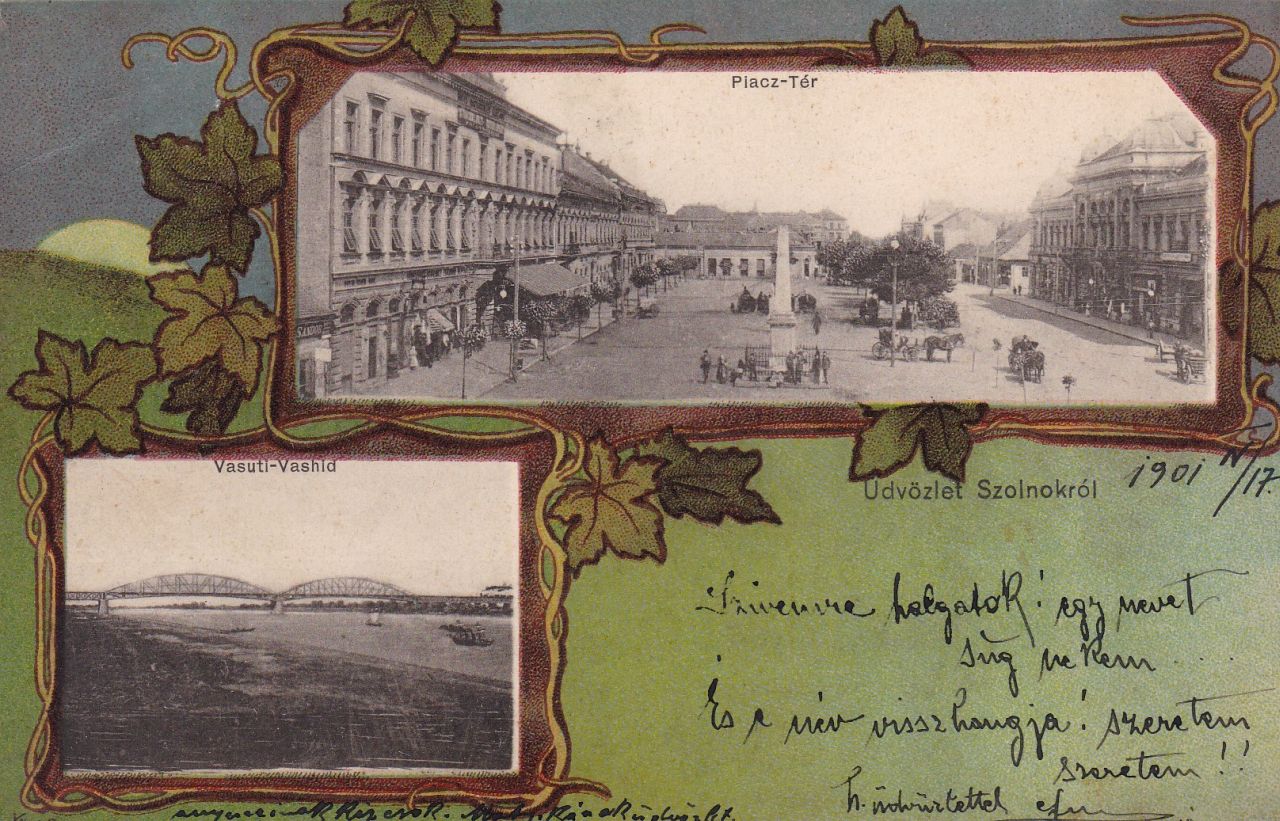 Piacz-Tér
SÁNDOR
Vasuti-Vashid
Üdvözlet Szolnokról
1901 IV/17.
Szivemre halgatok! egy nevet
súg nekem....
És e név visszhangja! szeretem
szeretem!!
h. üdvözlettel
kezcsók.